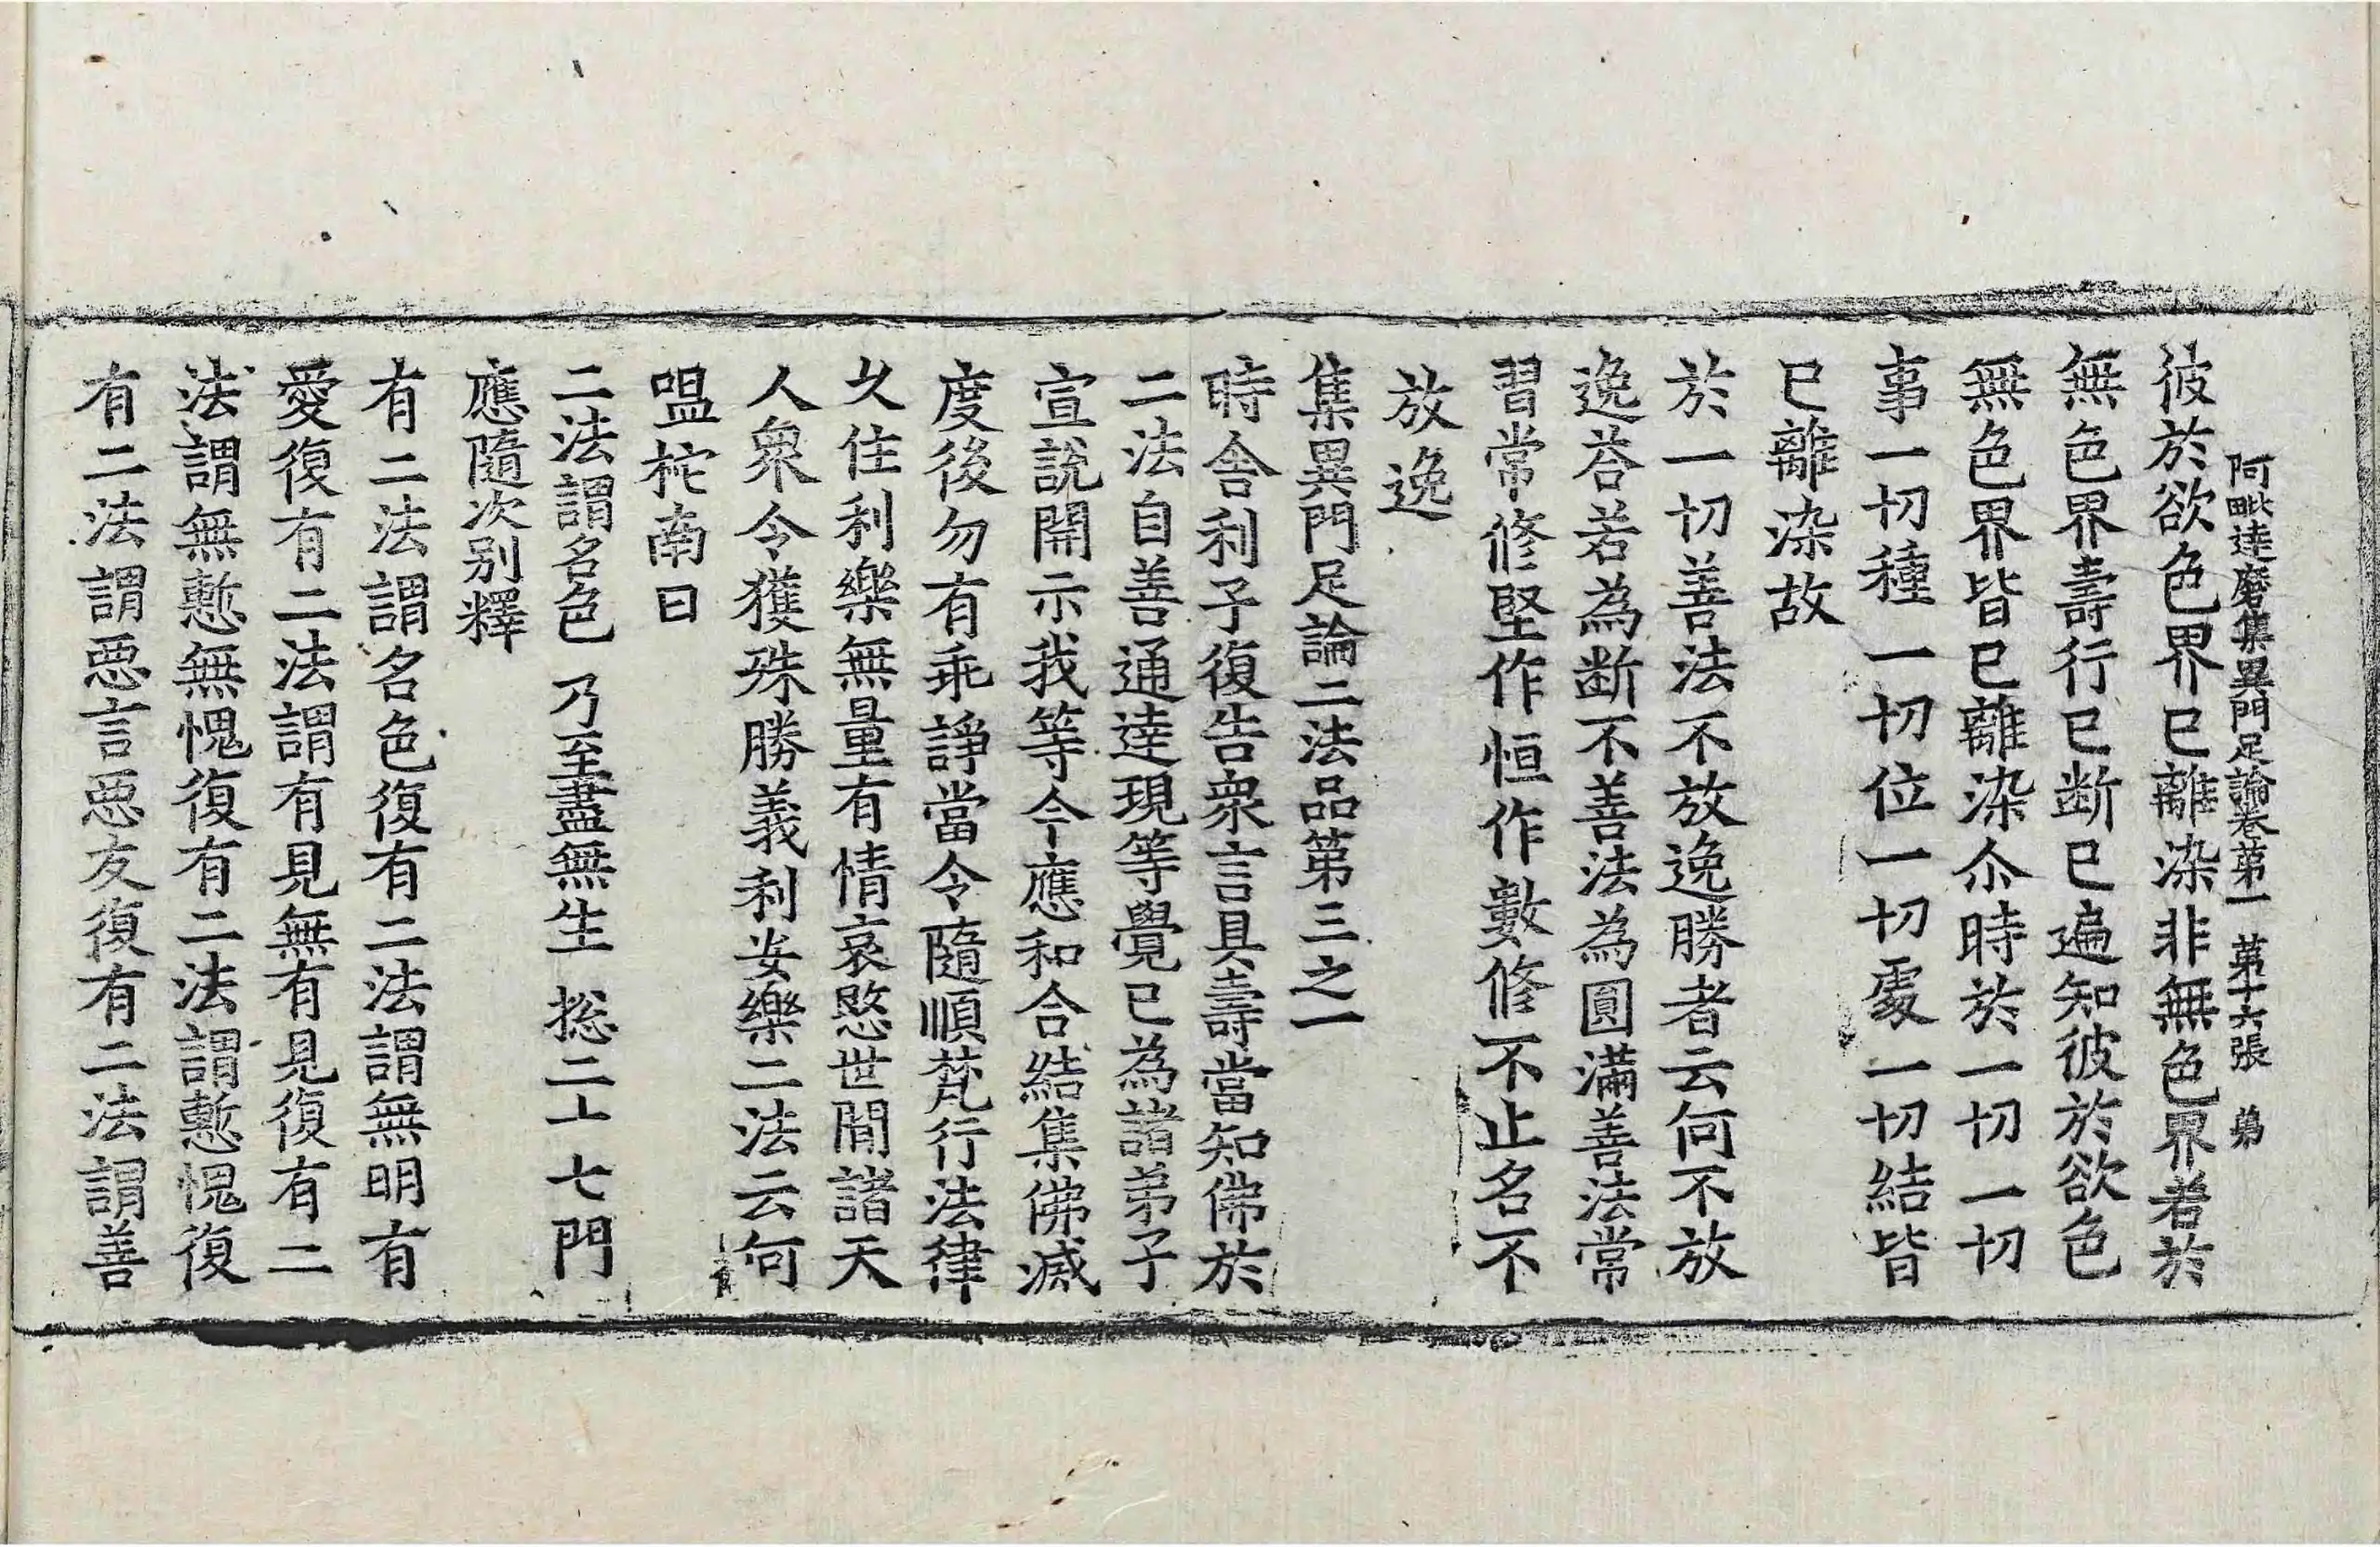 阿毗達磨集異門足論卷第一 第十六張 弟
彼於欲色界已離染非無色界者於
無色界壽行已断已遍知彼於欲色
無色界皆已離染尒時於一切一切
事一切種一切位一切處一切結皆
已離染故
於一切善法不放逸勝者云何不放
逸荅若為断不善法為圓滿善法常
習常修堅作恒作數修不止名不
放逸
集異門足論二法品第三之一
時舍利子復告衆言具壽當知佛於
二法自善通達現等覺已為諸弟子
宣說開示我等今應和合結集佛滅
度後勿有乖諍當令隨順梵行法律
久住利樂無量有情哀愍世間諸天
人衆令獲殊勝義利安樂二法云何
嗢柁南曰
二法謂名色 乃至盡無生 揔二十七門
應隨次別釋
有二法謂名色復有二法謂無明有
愛復有二法謂有見無有見復有二
法謂無慙無愧復有二法謂慙愧復
有二法謂惡言惡友復有二法謂善